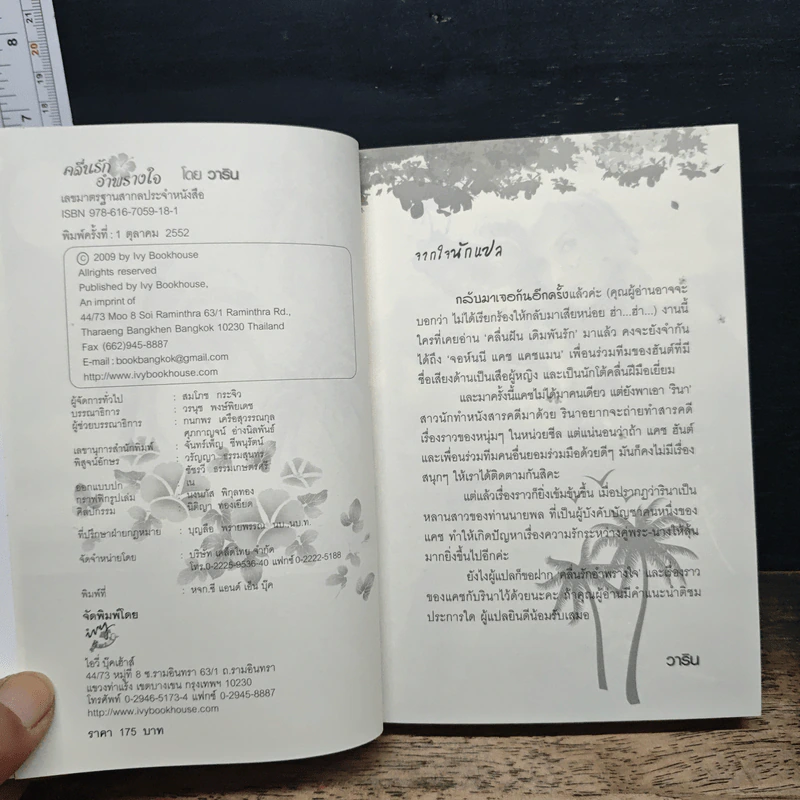 8
7
21
20
19
18
คลื่นรัก
อำพรางใจ โดย วาริน
เลขมาตรฐานสากลประจำหนังสือ
ISBN 978-616-7059-18-1
พิมพ์ครั้งที่ : 1 ตุลาคม 2552
© 2009 by Ivy Bookhouse
Allrights reserved
Published by Ivy Bookhouse,
An imprint of
44/73 Moo 8 Soi Raminthra 63/1 Raminthra Rd.,
Tharaeng Bangkhen Bangkok 10230 Thailand
Fax (662)945-8887
E-mail : bookbangkok@gmail.com
http://www.ivybookhouse.com
ผู้จัดการทั่วไป : สมโภช กระจิว
บรรณาธิการ : วรนุช พงษ์พิยเดช
ผู้ช่วยบรรณาธิการ : กนกพร เครือสุวรรณกุล
ศุภกาญจน์ อ่างนิลพันธ์
เลขานุการสำนักพิมพ์ : จันทร์เพ็ญ ชีพนุรัตน์
พิสูจน์อักษร : วรัญญา ธรรมสุนทร
ชัชรวี ธรรมเกษตรศิริ
ออกแบบปก : ณ
กราฟฟิกรูปเล่ม : นงนภัส พิกุลทอง
ศิลปกรรม : ปิติญา ทองเอียด
ที่ปรึกษาฝ่ายกฎหมาย : บุญลือ พรายพรรณ นบ.,นบ.ท.
จัดจำหน่ายโดย : บริษัท เคล็ดไทย จำกัด
โทร.0-2225-9536-40 แฟกซ์ 0-2222-5188
พิมพ์ที่ : หจก.ซี แอนด์ เอ็น บุ๊ค
จัดพิมพ์โดย
ivy
ไอวี่ บุ๊คเฮ้าส์
44/73 หมู่ที่ 8 ซ.รามอินทรา 63/1 ถ.รามอินทรา
แขวงท่าแร้ง เขตบางเขน กรุงเทพฯ 10230
โทรศัพท์ 0-2946-5173-4 แฟกซ์ 0-2945-8887
http://www.ivybookhouse.com
ราคา 175 บาท
จากใจนักแปล
กลับมาเจอกันอีกครั้งแล้วค่ะ (คุณผู้อ่านอาจจะ
บอกว่า ไม่ได้เรียกร้องให้กลับมาเสียหน่อย ฮ่า...ฮ่า...) งานนี้
ใครที่เคยอ่าน 'คลื่นฝัน เดิมพันรัก' มาแล้ว คงจะยังจำกัน
ได้ถึง 'จอห์นนี่ แคช แคชแมน' เพื่อนร่วมทีมของฮันต์ที่มี
ชื่อเสียงด้านเป็นเสือผู้หญิง และเป็นนักโต้คลื่นฝีมือเยี่ยม
และมาครั้งนี้แคชไม่ได้มาคนเดียว แต่ยังพาเอา 'รินา'
สาวนักทำหนังสารคดีมาด้วย รินาอยากจะถ่ายทำสารคดี
เรื่องราวของหนุ่มๆ ในหน่วยซีล แต่แน่นอนว่าถ้า แคช ฮันต์
และเพื่อนร่วมทีมคนอื่นยอมร่วมมือด้วยดีๆ มันก็คงไม่มีเรื่อง
สนุกๆ ให้เราได้ติดตามกันสิคะ
แต่แล้วเรื่องราวก็ยิ่งเข้มข้นขึ้น เมื่อปรากฏว่ารินาเป็น
หลานสาวของท่านนายพล ที่เป็นผู้บังคับบัญชาคนหนึ่งของ
แคช ทำให้เกิดปัญหาเรื่องความรักระหว่างคู่พระ-นางให้ลุ้น
มากยิ่งขึ้นไปอีกค่ะ
ยังไงผู้แปลก็ขอฝาก 'คลื่นรักอำพรางใจ' และเรื่องราว
ของแคชกับรินาไว้ด้วยนะคะ ถ้าคุณผู้อ่านมีคำแนะนำติชม
ประการใด ผู้แปลยินดีน้อมรับเสมอ
วาริน